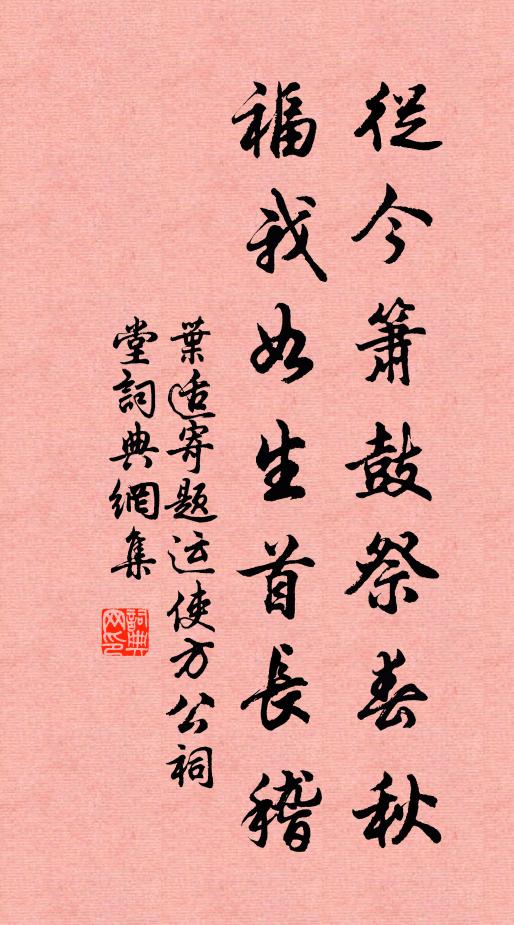 從今簫鼓祭春秋
福我如生首長稽
葉适寄題运使方公祠
堂詞典網集
詞典
网印